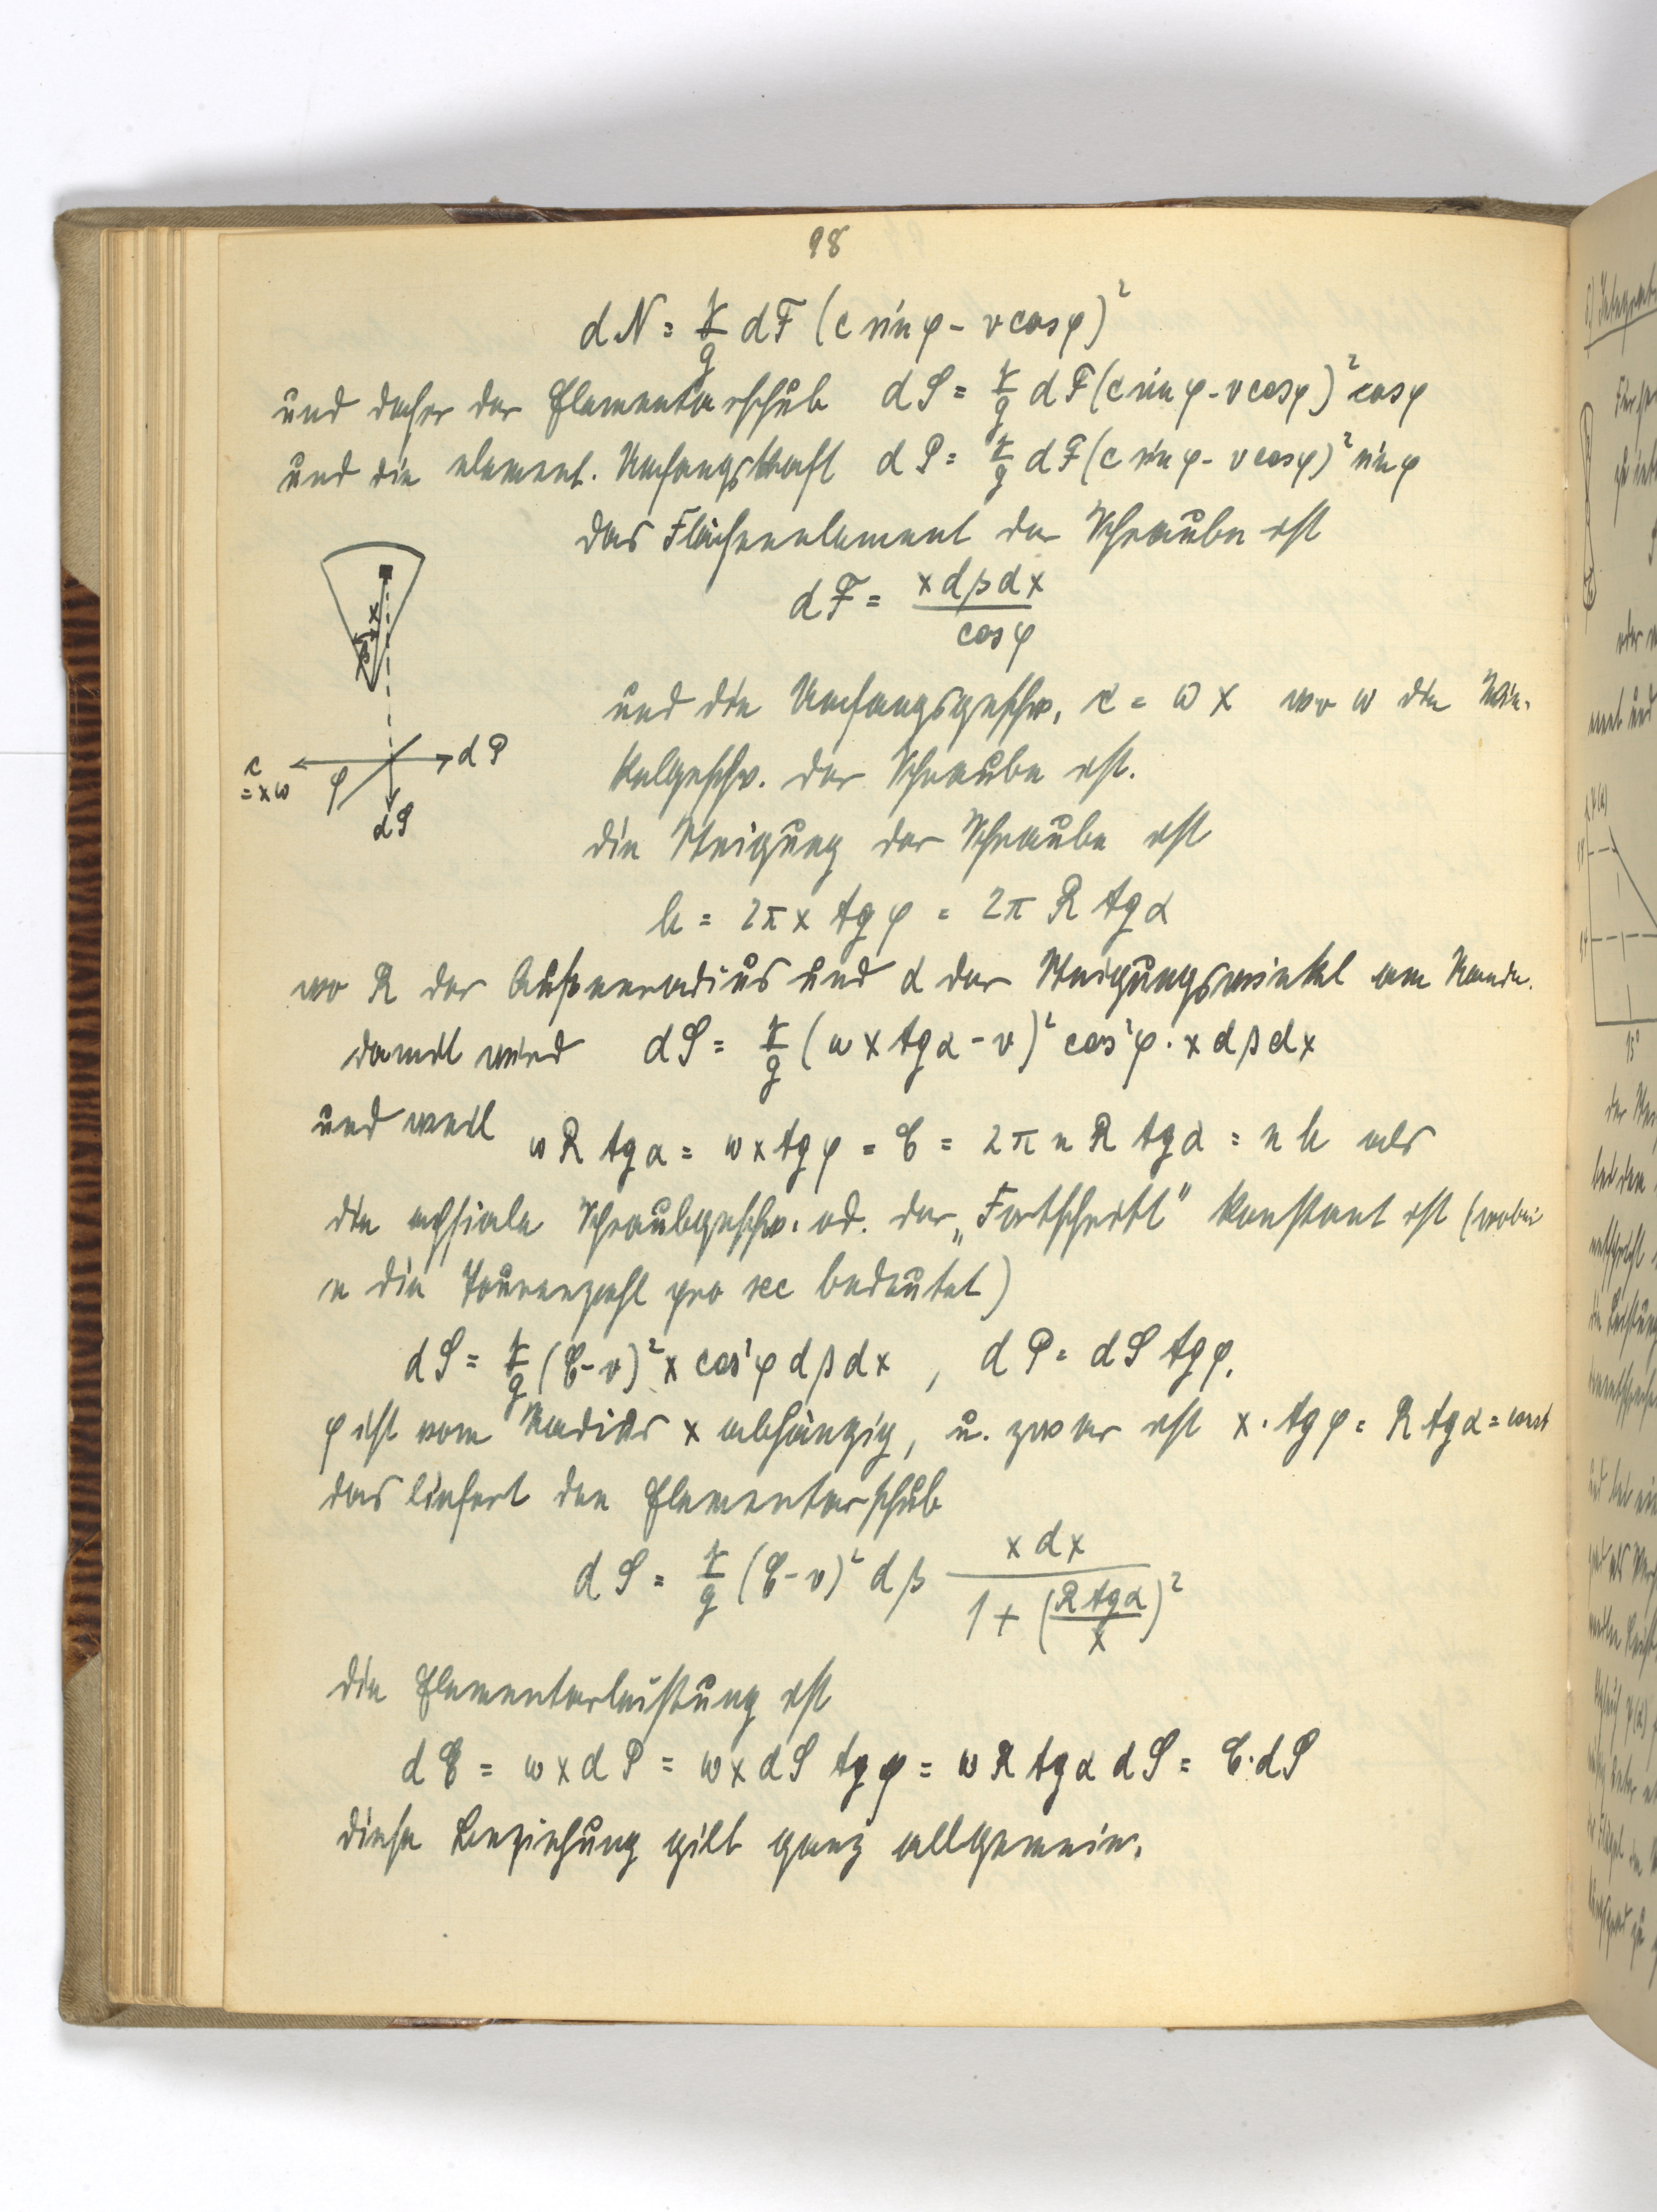 98
dN = γ/g dF (c sin φ - v cos φ)²
und daher der Elementarschub dS = γ/g dF (c sin φ - v cos φ)² cos φ
und die element. Umfangskraft dP = γ/g dF (c sin φ - v cos φ)² sin φ
das Flächenelement der Schraube ist
dF = x dβ dx / cos φ
x
β
und die Umfangsgeschw. c = ω x wo ω die Win-
c = xω
φ
dP
dS
kelgeschw. der Schraube ist.
die Steigung der Schraube ist
h = 2π x tg φ = 2π R tg α
wo R der Außenradius und α der Steigungswinkel am Rande.
damit wird dS = γ/g (ω x tg α - v)² cos² φ · x dβ dx
und weil ω R tg α = ω x tg φ = C = 2π n R tg α = n h als
die achsiale Schraubgeschw. od. der „Fortschritt" konstant ist (wobei
n die Tourenzahl pro sec bedeutet)
dS = γ/g (C - v)² x cos² φ dβ dx , dP = dS tg φ.
φ ist vom Radius x abhängig, u. zwar ist x · tg φ = R tg α = const
das liefert den Elementarschub
dS = γ/g (C - v)² dβ x dx / 1 + (R tg α / x)²
die Elementarleistung ist
dE = ω x dP = ω x dS tg φ = ω R tg α dS = C · dS
diese Beziehung gilt ganz allgemein.